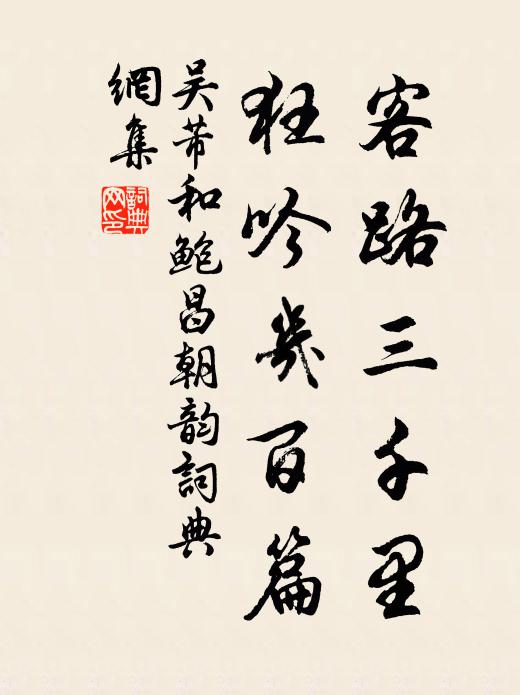 客路三千里
狂吟幾百篇
吴芾和鲍昌朝韵詞典
網集
詞典網印